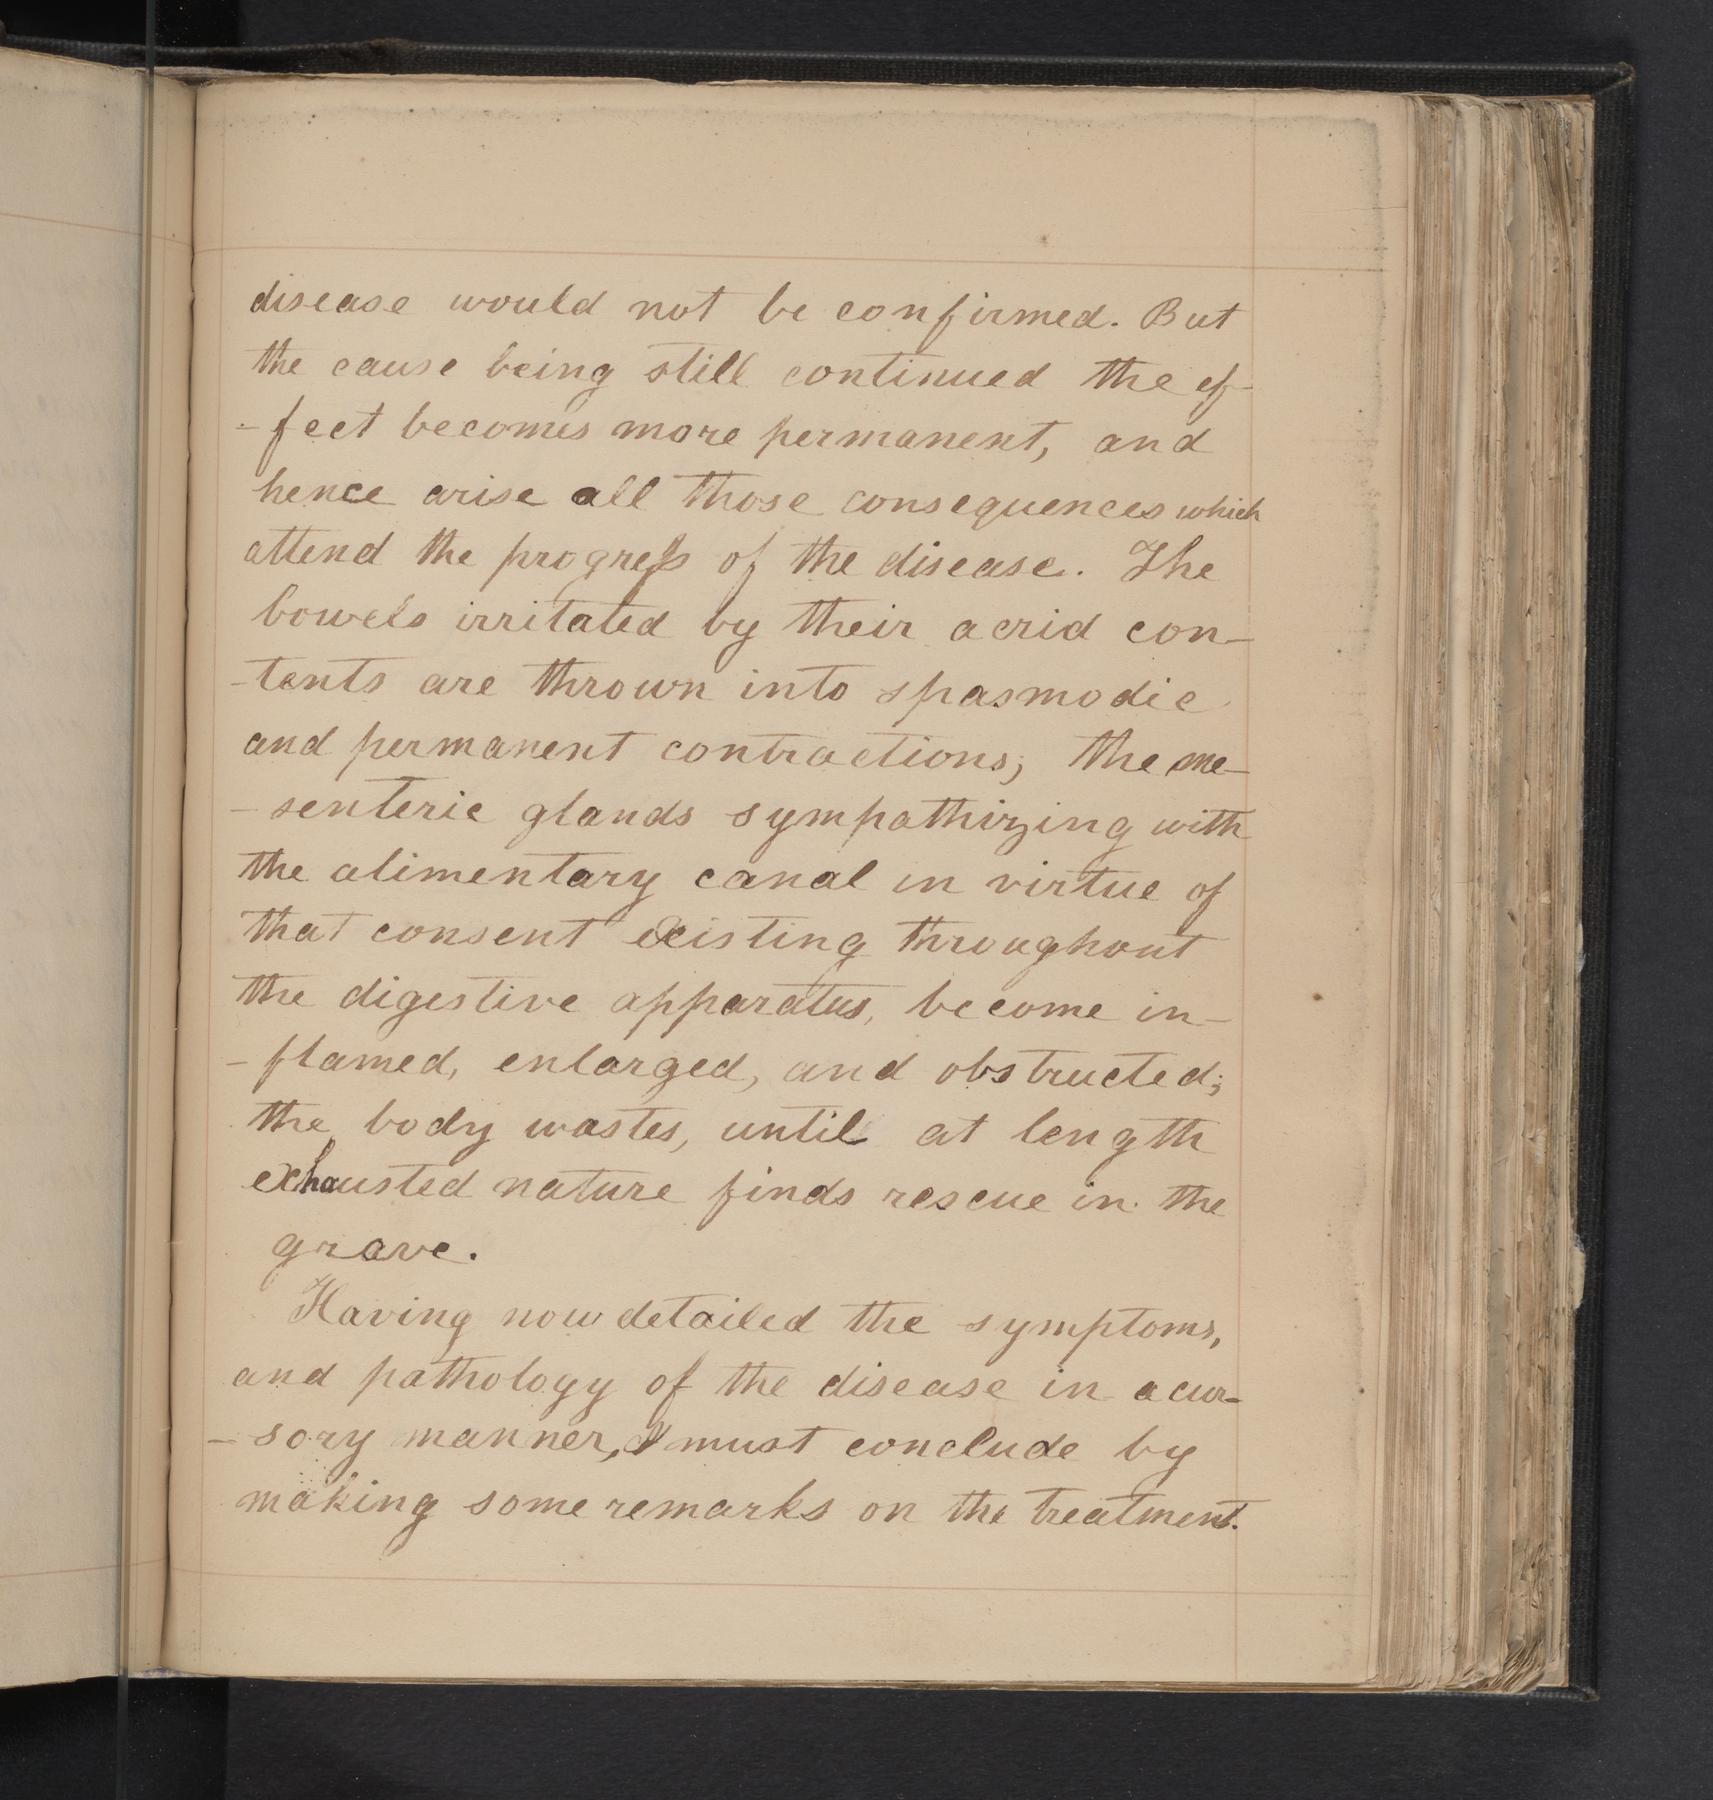 disease would not be confirmed. But
the cause being still continued the ef-
-fect becomes more permanent, and
hence arise all those consequences which
attend the progress of the disease. The
bowels irritated by their acrid con-
-tents are thrown into spasmodic
and permanent contractions; the me-
-senteric glands sympathizing with
the alimentary canal in virtue of
that consent existing throughout
the digestive apparatus, become in-
-flamed, enlarged, and obstructed;
the body wastes, until at length
exhausted nature finds rescue in the
grave.
Having now detailed the symptoms,
and pathology of the disease in a cur-
-sory manner, I must conclude by
making some remarks on the treatment.